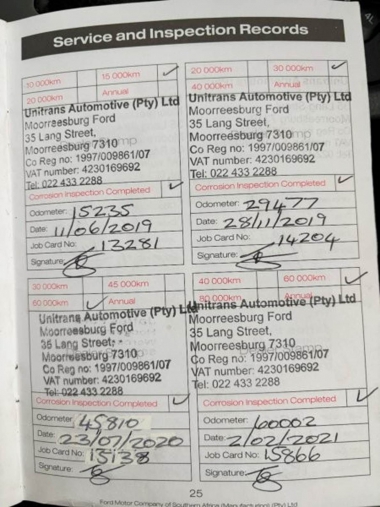 Service and Inspection Records
10 000km 15 000km ✓
20 000km Annual
Unitrans Automotive (Pty) Ltd
Moorreesburg Ford
35 Lang Street,
Moorreesburg 7310
Co Reg no: 1997/009861/07
VAT number: 4230169692
Tel: 022 433 2288
Corrosion Inspection Completed ✓
Odometer: 15235
Date: 11/06/2019
Job Card No: 13281
Signature:
20 000km 30 000km ✓
40 000km Annual
Unitrans Automotive (Pty) Ltd
Moorreesburg Ford
35 Lang Street,
Moorreesburg 7310
Co Reg no: 1997/009861/07
VAT number: 4230169692
Tel: 022 433 2288
Corrosion Inspection Completed ✓
Odometer: 29477
Date: 28/11/2019
Job Card No: 14204
Signature:
30 000km 45 000km
60 000km ✓ Annual
Unitrans Automotive (Pty) Ltd
Moorreesburg Ford
35 Lang Street,
Moorreesburg 7310
Co Reg no: 1997/009861/07
VAT number: 4230169692
Tel: 022 433 2288
Corrosion Inspection Completed ✓
Odometer: 45810
Date: 23/07/2020
Job Card No: 15138
Signature:
40 000km 60 000km ✓
80 000km Annual
Unitrans Automotive (Pty) Ltd
Moorreesburg Ford
35 Lang Street,
Moorreesburg 7310
Co Reg no: 1997/009861/07
VAT number: 4230169692
Tel: 022 433 2288
Corrosion Inspection Completed ✓
Odometer: 60002
Date: 2/02/2021
Job Card No: 15866
Signature:
25
Ford Motor Company of Southern Africa (Manufacturing) (Pty) Ltd